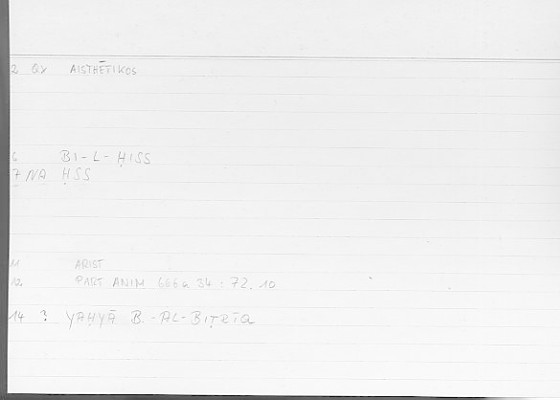 2 QX AISTHĒTIKOS
6 BI-L-ḤISS
7 NA ḤSS
11 ARIST
12 PART ANIM 666a 34 : 72.10
14 ? YAḤYĀ B.-AL-BIṬRĪQ